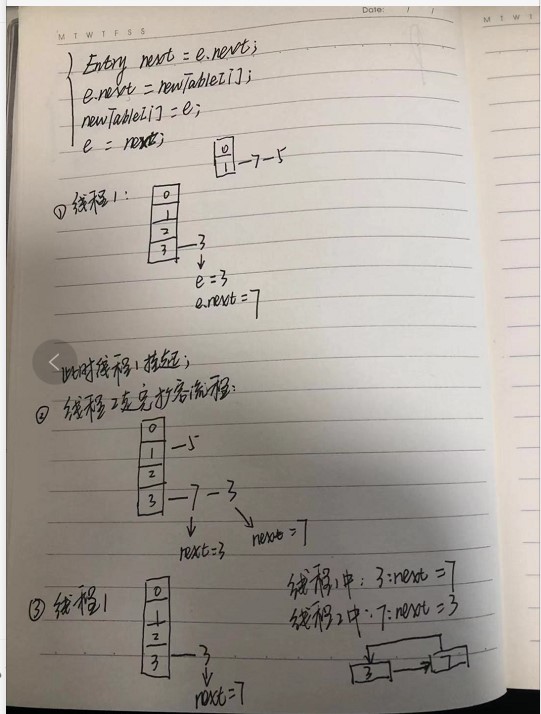 Date: / /
M T W T F S S
M T W T
Entry next = e.next;
e.next = newTable[i];
newTable[i] = e;
e = next;
0
1 — 7 — 5
① 线程1:
0
1
2
3 — 3
e = 3
e.next = 7
此时线程1挂起;
② 线程2走完扩容流程:
0
1 — 5
2
3 — 7 — 3
next = 3
next = 7
③ 线程1
0
1
2
3 — 3
next = 7
线程1中: 3:next = 7
线程2中: 7:next = 3
3
7